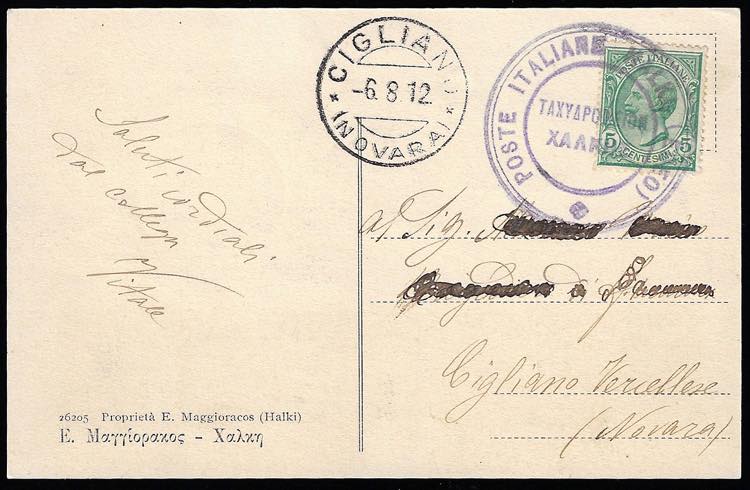 CIGLIANO
-6.8.12
(NOVARA)
POSTE ITALIANE
ΤΑΧΥΔΡΟ
ΧΑΛΚ
POSTE ITALIANE
5 5
CENTESIMI
Saluti cordiali
dal collega
Vitale
al Sig.
di
Cigliano Vercellese
(Novara)
26205 Proprietà E. Maggioracos (Halki)
Ε. Μαγγίορακος – Χαλκη